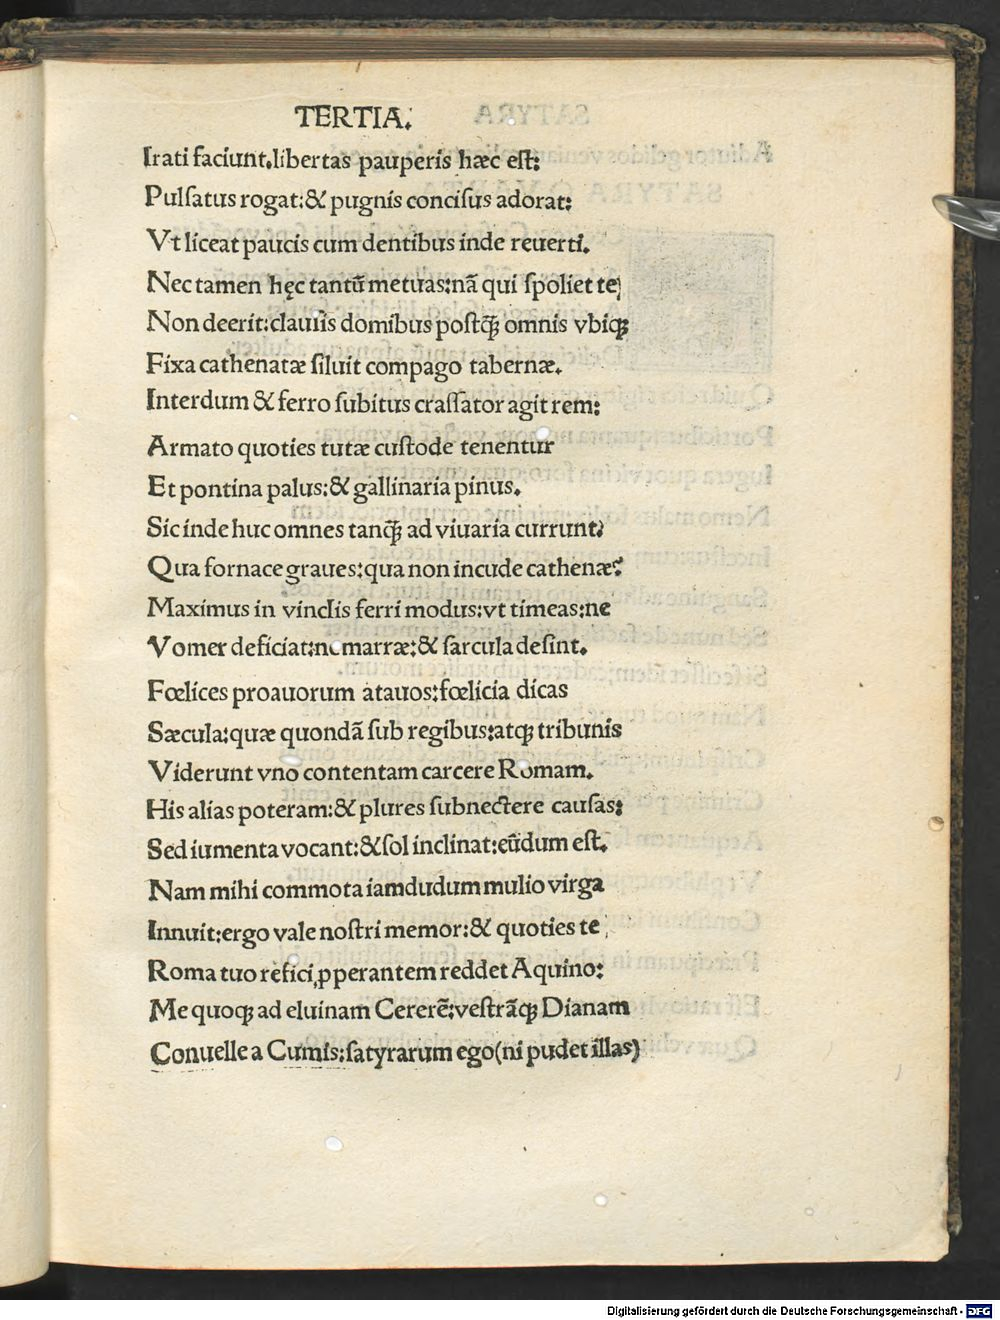 TERTIA.
Irati faciunt.libertas pauperis hæc est:
Pulsatus rogat:& pugnis concisus adorat:
Vt liceat paucis cum dentibus inde reuerti.
Nec tamen hęc tantū metuas:nā qui spoliet te
Non deerit:clausis domibus postꝗ̃ omnis vbiqꝫ
Fixa cathenatæ siluit compago tabernæ.
Interdum & ferro subitus crassator agit rem:
Armato quoties tutæ custode tenentur
Et pontina palus:& gallinaria pinus.
Sic inde huc omnes tanꝗ̃ ad viuaria currunt.
Qua fornace graues:qua non incude cathenæ?
Maximus in vinclis ferri modus:vt timeas:ne
Vomer deficiat:ne marræ:& sarcula desint.
Fœlices proauorum atauos:fœlicia dicas
Sæcula:quæ quondā sub regibus:atqꝫ tribunis
Viderunt vno contentam carcere Romam.
His alias poteram:& plures subnectere causas:
Sed iumenta vocant:& sol inclinat:eūdum est.
Nam mihi commota iamdudum mulio virga
Innuit:ergo vale nostri memor:& quoties te
Roma tuo refici ꝓperantem reddet Aquino:
Me quoqꝫ ad eluinam Cererē:vestrāqꝫ Dianam
Conuelle a Cumis:satyrarum ego(ni pudet illas)
Digitalisierung gefördert durch die Deutsche Forschungsgemeinschaft - DFG